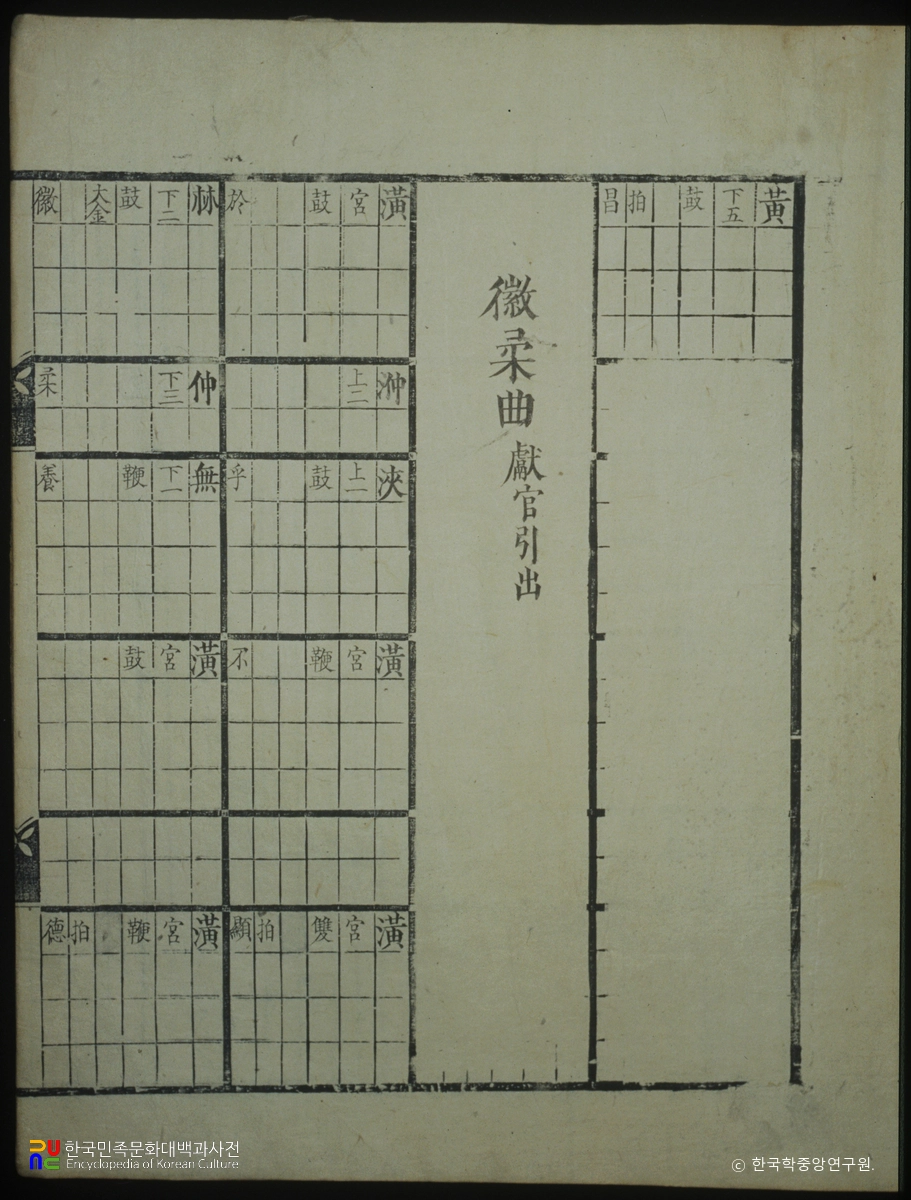 黃 下五 鼓 拍 昌
徽柔曲 獻官引出
潢 宮 鼓 於
㳞 上二
浹 上一 鼓 乎
潢 宮 鞭 不
潢 宮 雙 拍 顯
林 下二 鼓 大金 徽
仲 下三 柔
無 下一 鞭 養
潢 宮 鼓
潢 宮 鞭 拍 德
한국민족문화대백과사전
Encyclopedia of Korean Culture
© 한국학중앙연구원.